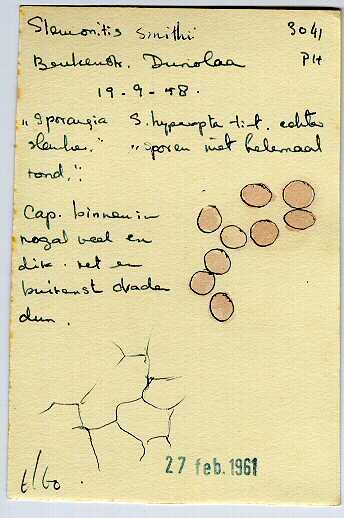 Stemonitis Smithii 3041
Beukenstr. Duinlaa PH
19-9-58.
"Sporangia S. hyperopta tint. echter
slanker." "sporen niet helemaal
rond.":
Cap. binnenin
nogal veel en
dik. net en
buitenst draden
dun.
27 feb. 1961